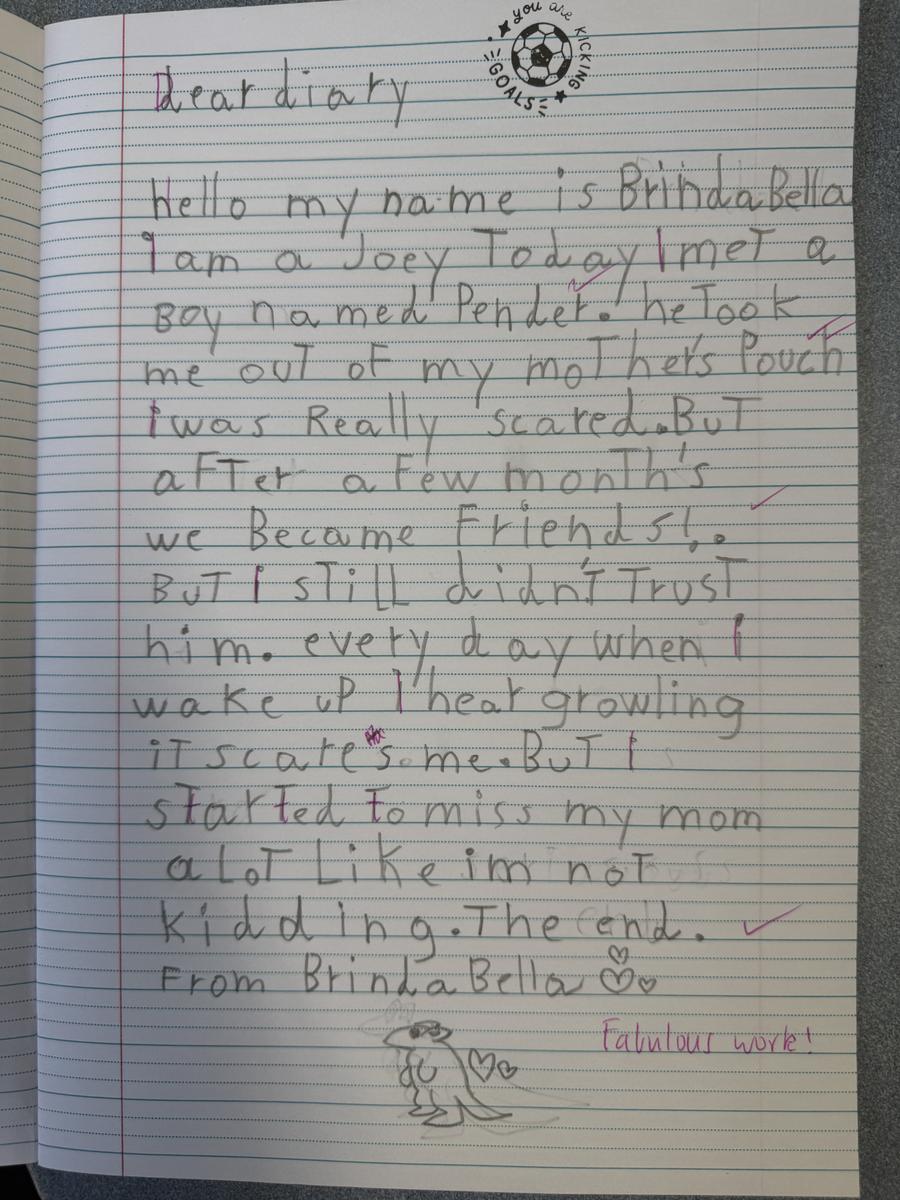 you are KICKING GOALS
Dear diary
Hello my name is BrindaBella
I am a Joey Today I meT a
Boy named Pender. he Took
me ouT oF my moTher's Pouch
i was Really scared. BuT
aFTer a Few monTh's
we Became Friends!.
BuT I sTiLL didn'T TrusT
him. every day when I
wake uP I hear growling
iT scare's me. BuT I
started to miss my mom
a LoT Like im noT
kidding. The end.
From BrindaBella
Fabulous work!